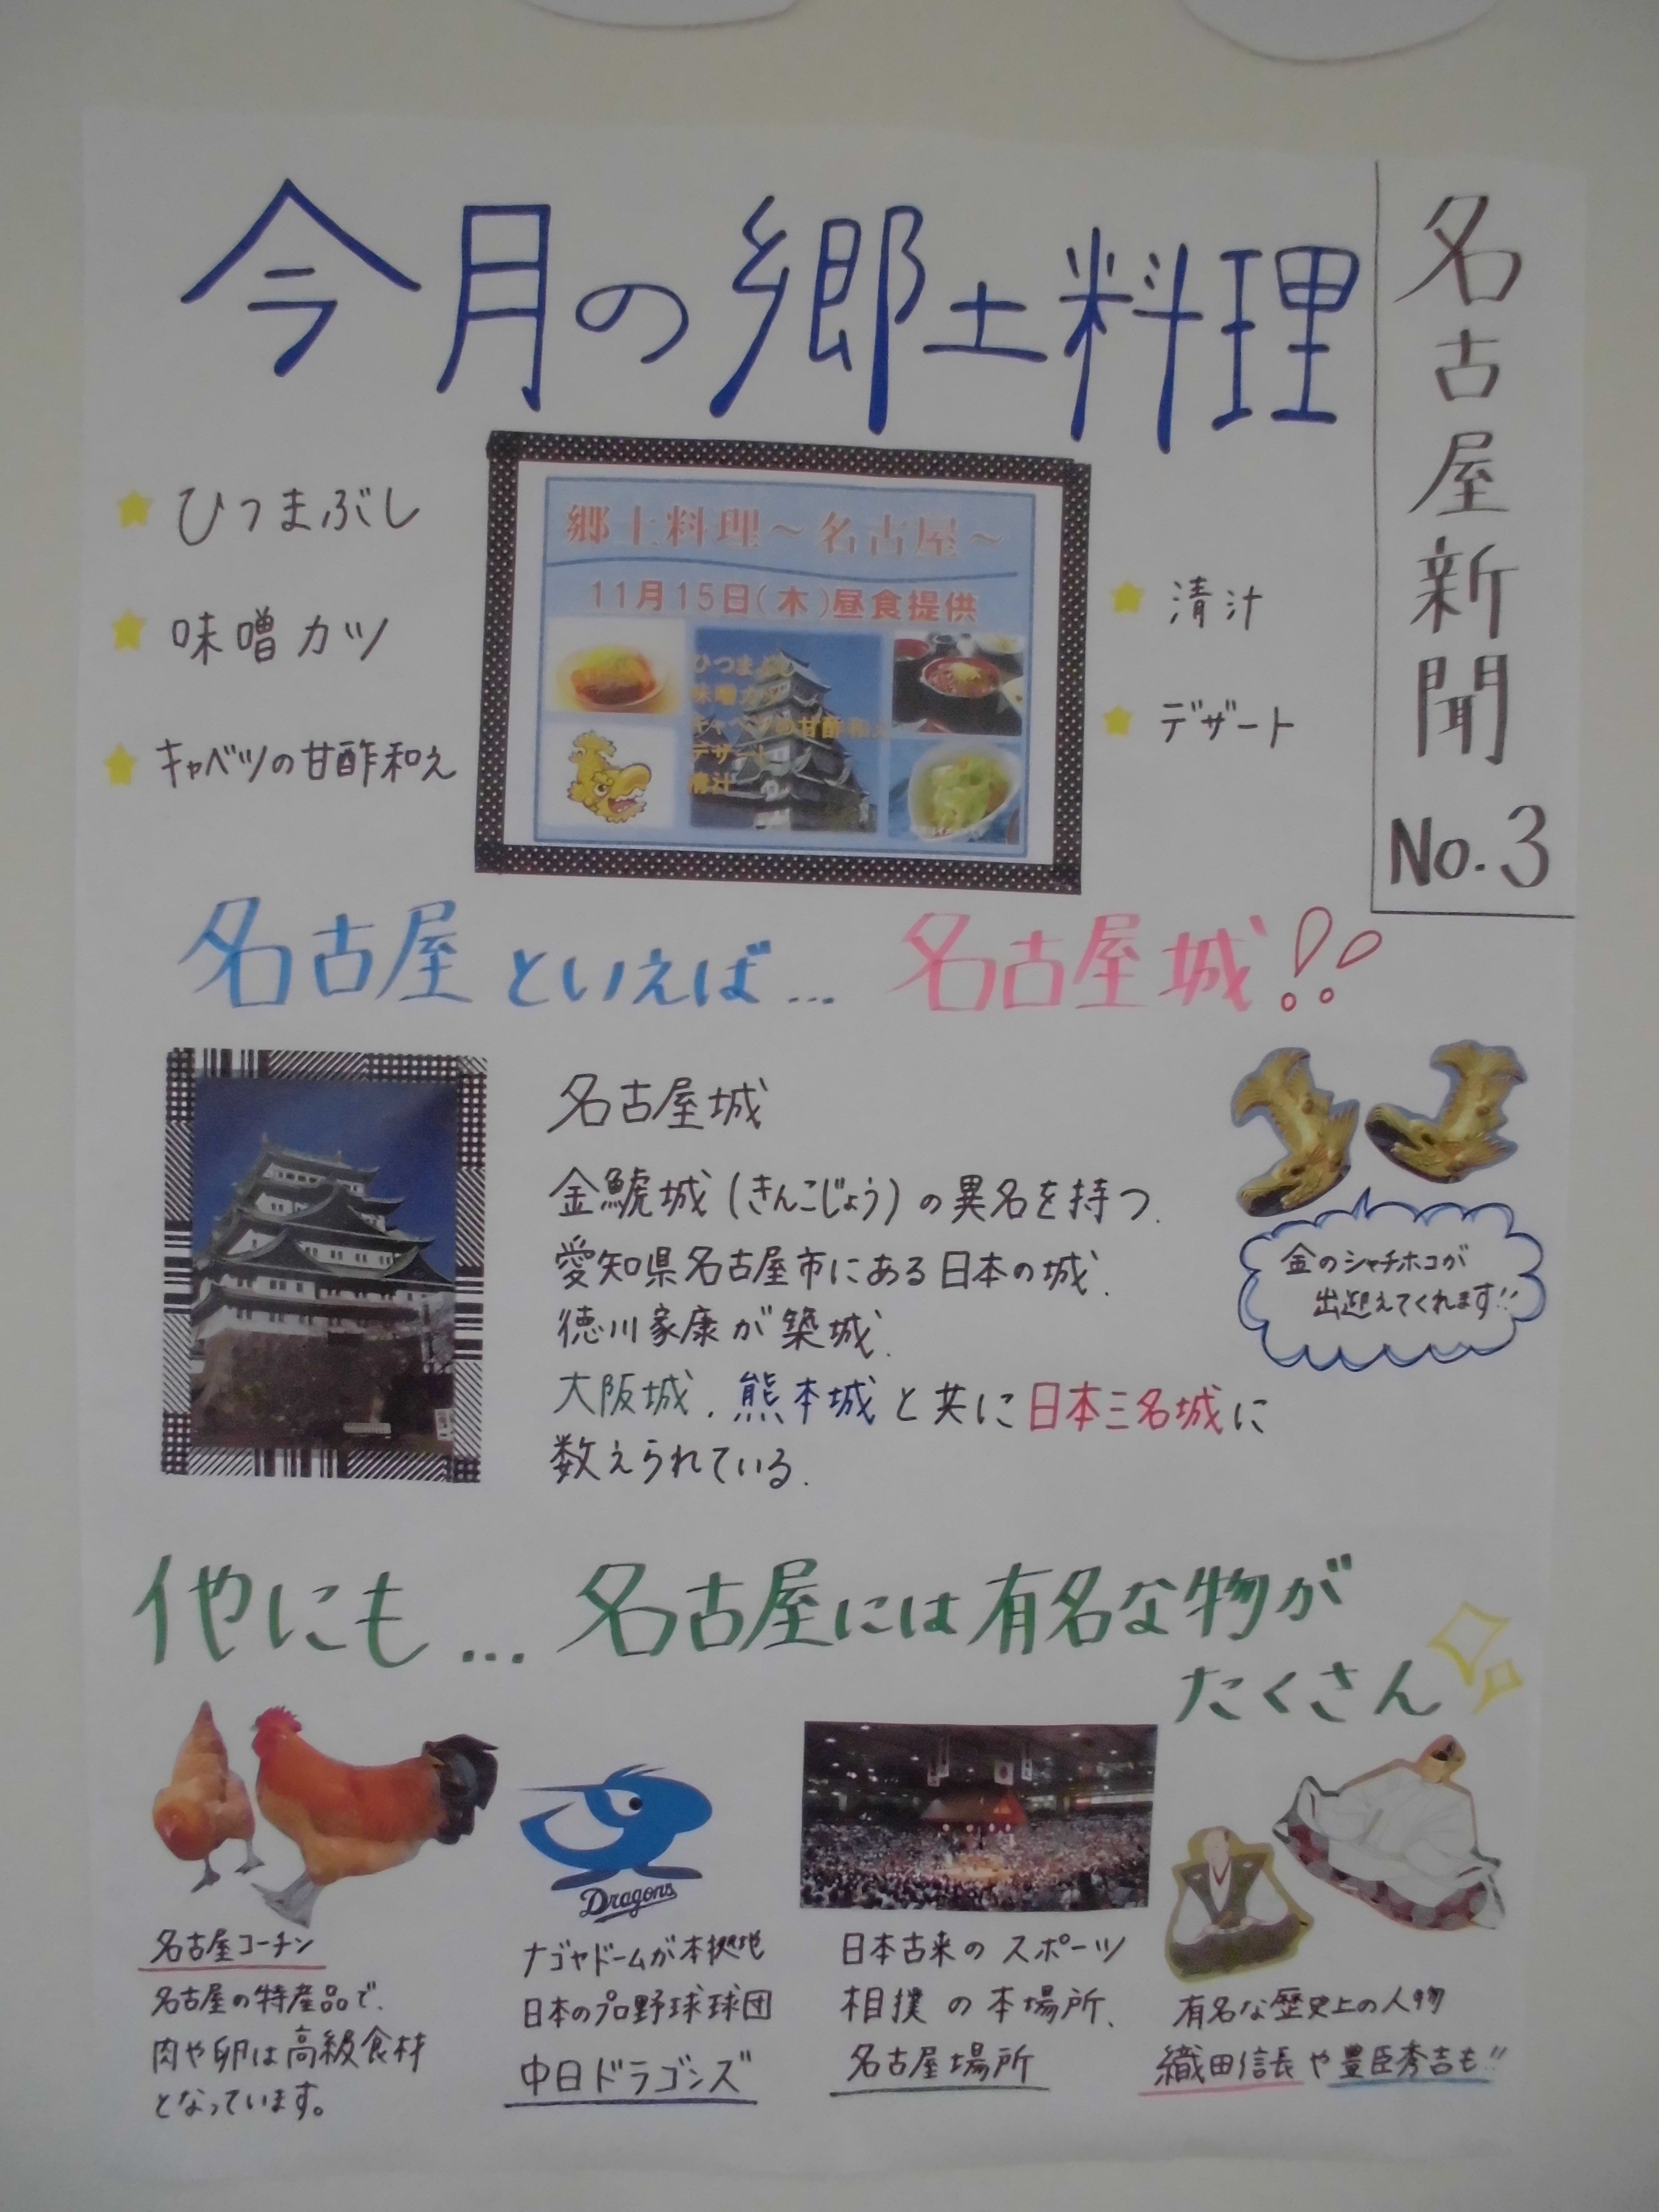 名古屋新聞 No.3
今月の郷土料理
ひつまぶし
味噌カツ
キャベツの甘酢和え
郷土料理～名古屋～
11月15日(木)昼食提供
ひつまぶし
味噌カツ
キャベツの甘酢和え
デザート
清汁
清汁
デザート
名古屋といえば... 名古屋城!!
名古屋城
金鯱城(きんこじょう)の異名を持つ.
愛知県名古屋市にある日本の城.
徳川家康が築城.
大阪城.熊本城と共に日本三名城に
数えられている.
金のシャチホコが
出迎えてくれます!!
他にも...名古屋には有名な物が
たくさん
名古屋コーチン
名古屋の特産品で、
肉や卵は高級食材
となっています。
Dragons
ナゴヤドームが本拠地
日本のプロ野球球団
中日ドラゴンズ
日本古来のスポーツ
相撲の本場所、
名古屋場所
有名な歴史上の人物
織田信長や豊臣秀吉も!!